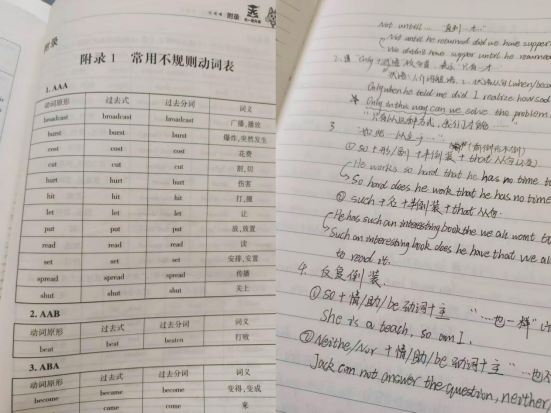 附录
附录
附录 1 常用不规则动词表
1. AAA
动词原形 过去式 过去分词 词义
broadcast broadcast broadcast 广播,播放
burst burst burst 爆炸,突然发生
cost cost cost 花费
cut cut cut 割,切
hurt hurt hurt 伤害
hit hit hit 打,撞
let let let 让
put put put 放,放置
read read read 读
set set set 安排,安置
spread spread spread 传播
shut shut shut 关上
2. AAB
动词原形 过去式 过去分词 词义
beat beat beaten 打败
3. ABA
动词原形 过去式 过去分词 词义
become became become 变得,变成
come came come 来
Not until … "直到…才"
Not until he returned did we have supper
We didn't have supper until he returned
Only when he told me did I realize how
Only in this way can we solve the problem
3.
① so + 形/副 + 半倒装 + that 从句
He works so hard that he has no time to
So hard does he work that he has no time
② such + 名 + 半倒装 + that 从句
He has such an interesting book the we all want to
Such an interesting book does he have that we all
to read it.
4. 反复倒装.
① so + 情/助/be 动词 + 主 "…也一样"
She is a teach, so am I.
② Neithe/Nor + 情/助/be 动词 + 主 "…也不
Jack can not answer the question, neither